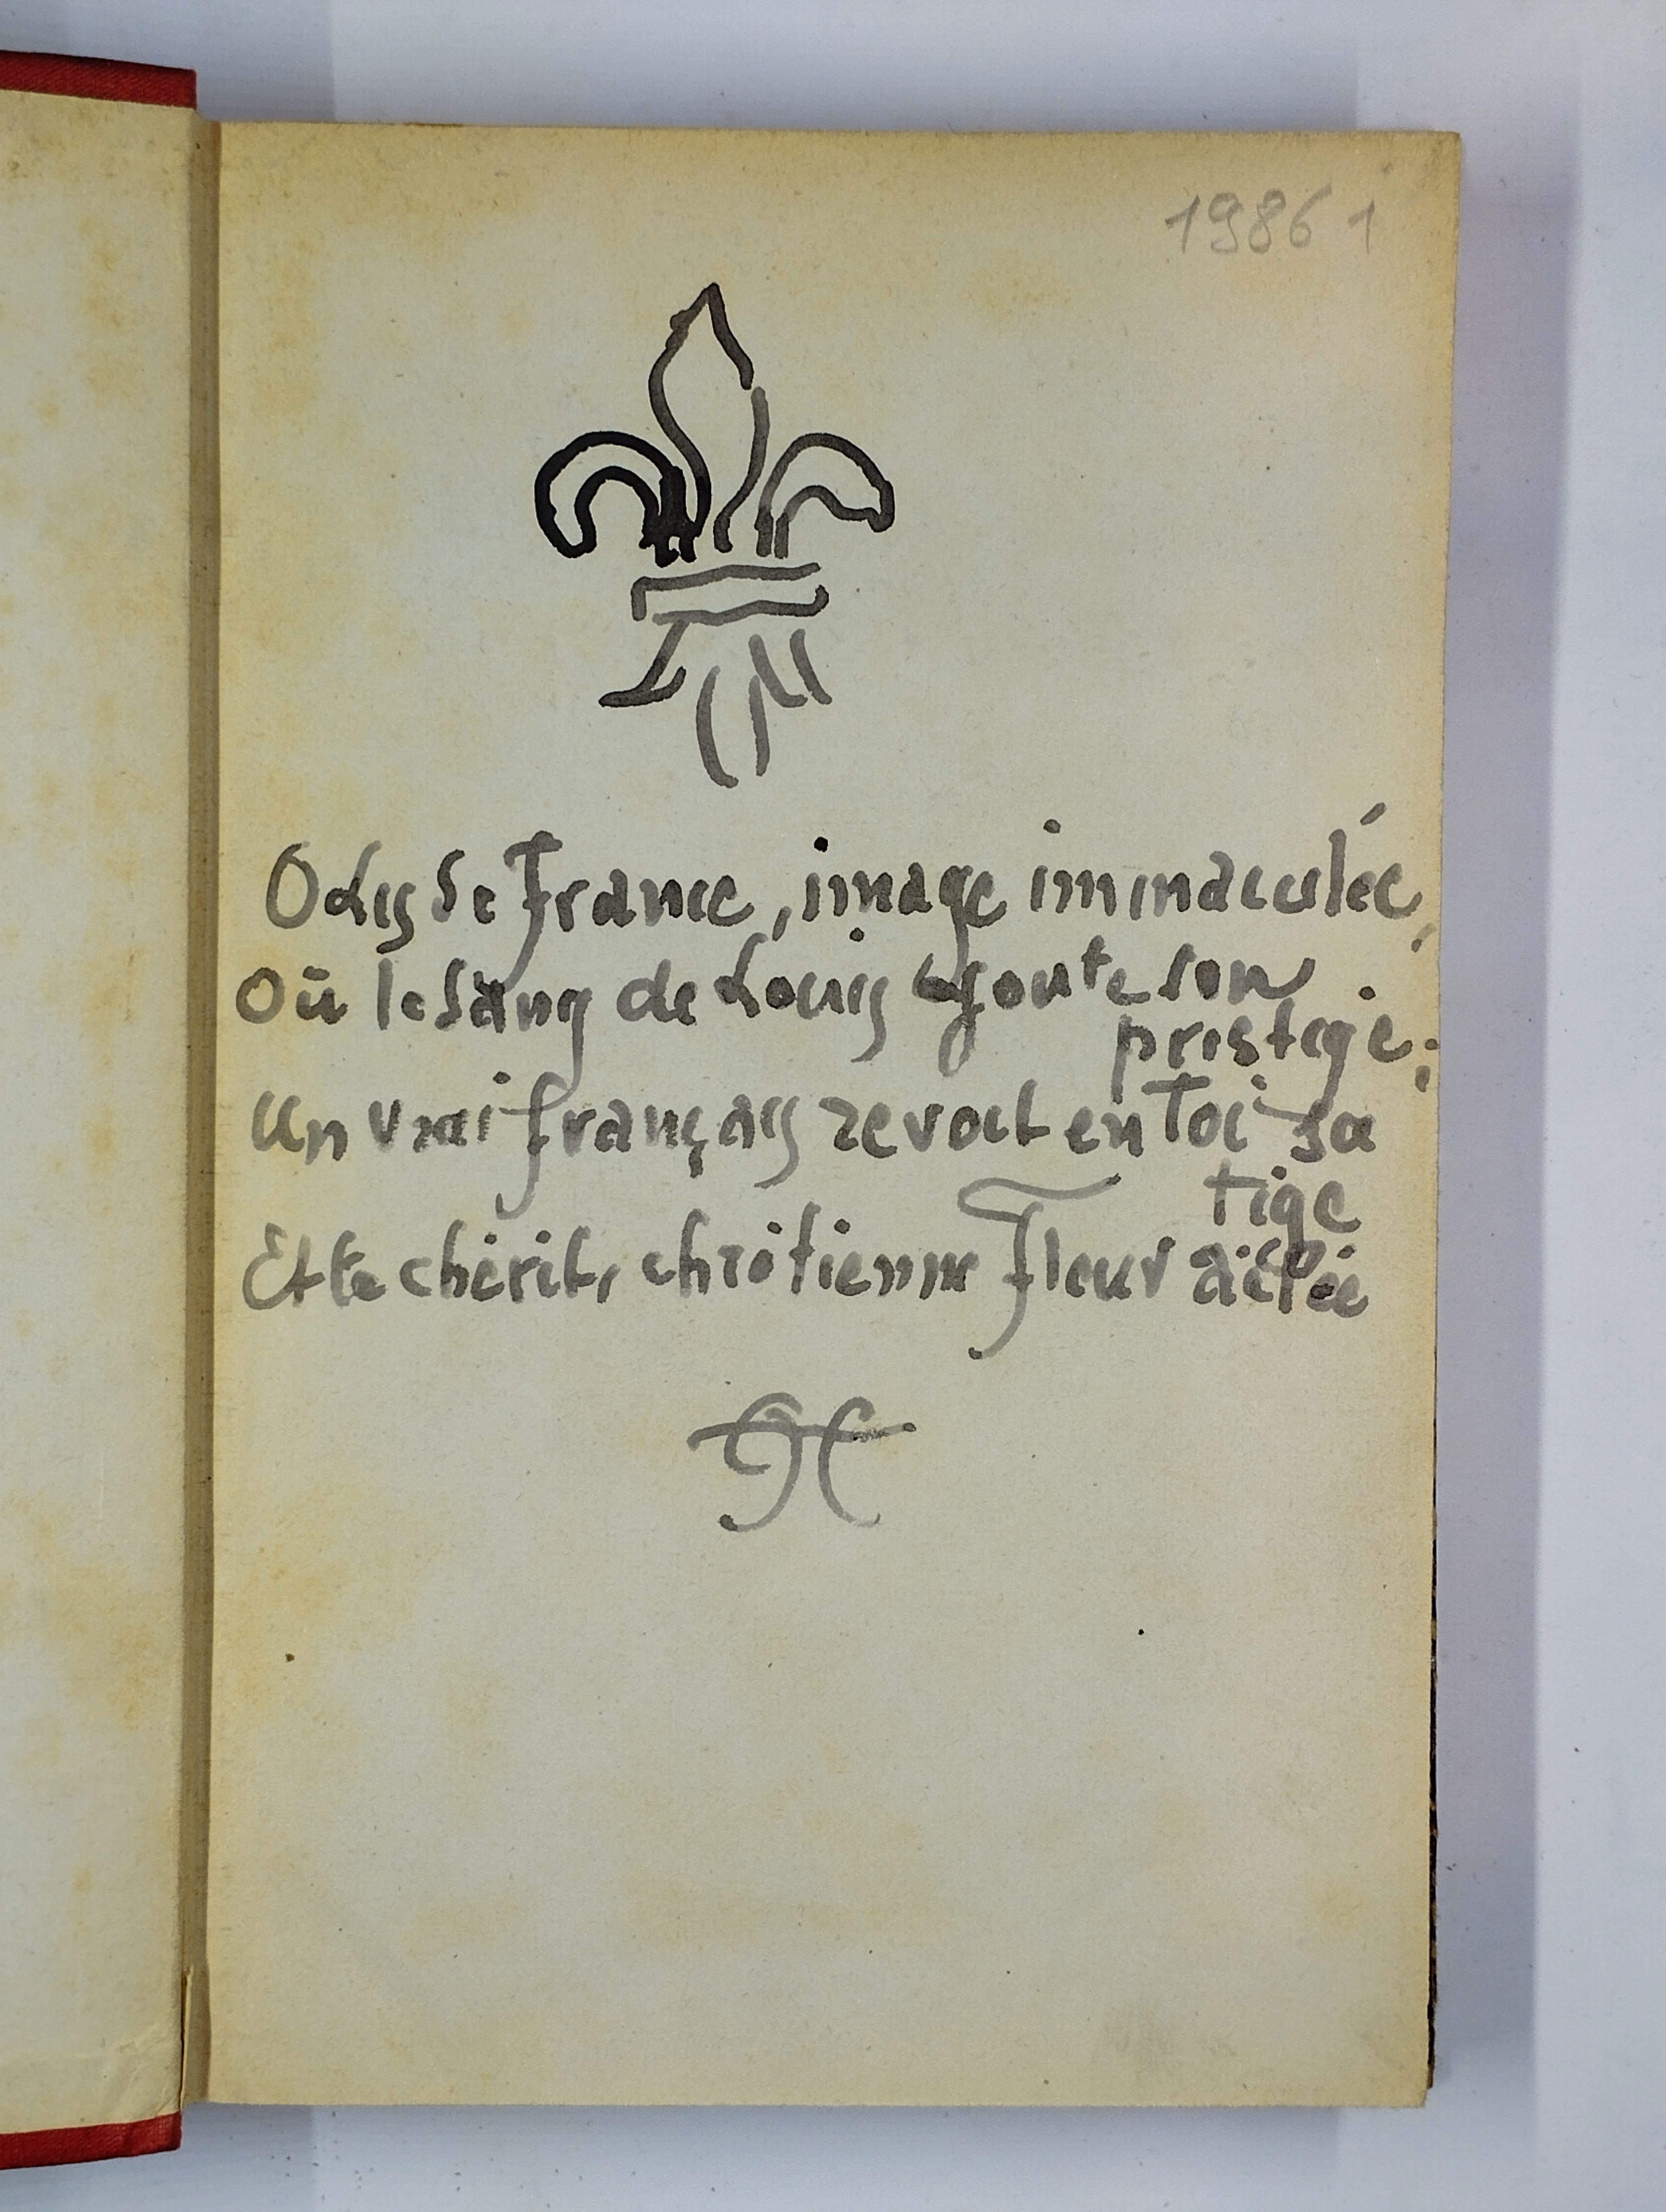 19861
O Lys de France, image immaculée,
Où le sang de Louys ajoute son
prestige;
Un vrai françays revoit en Toi sa
tige
Et te chérit, chrétienne Fleur ailée